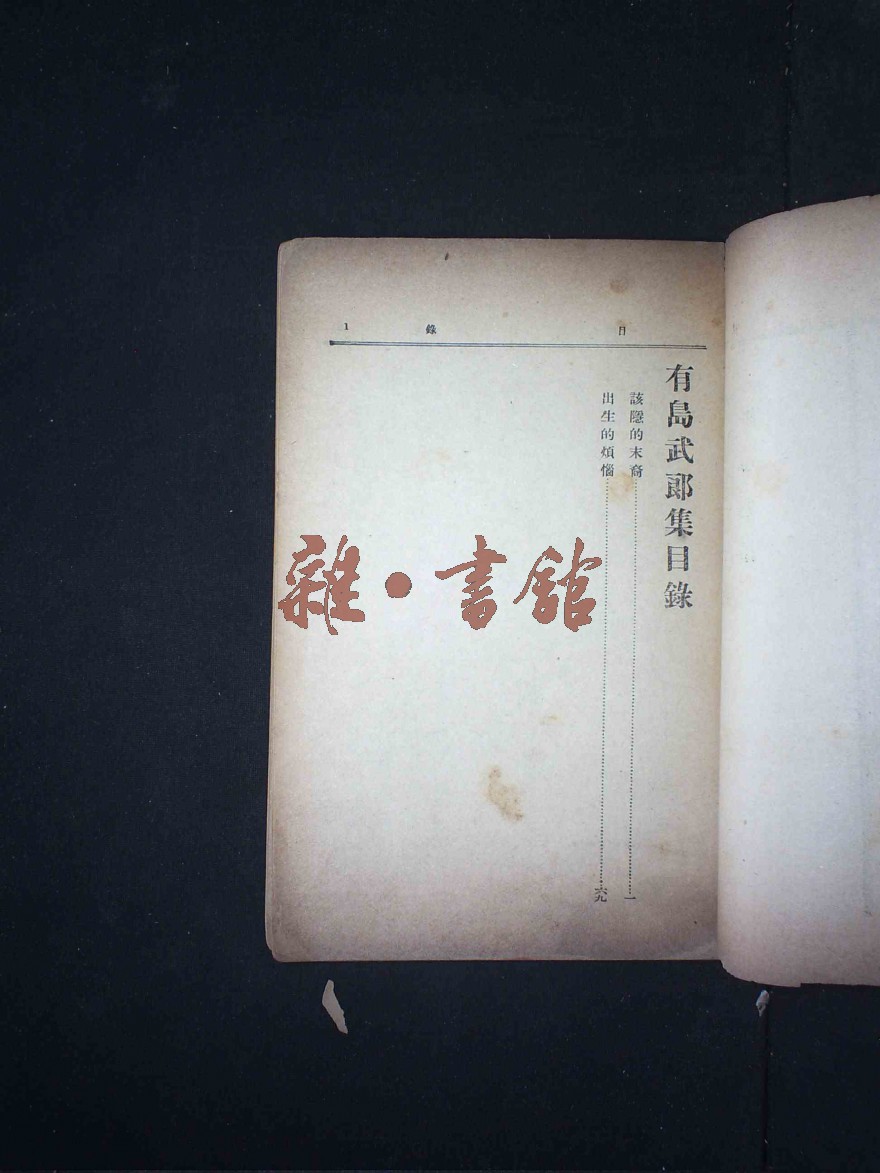 目錄 1
有島武郎集目錄
該隱的末裔……一
出生的煩惱……六九
雜·書館